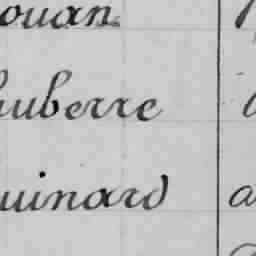 ouan
huberre
uinard a